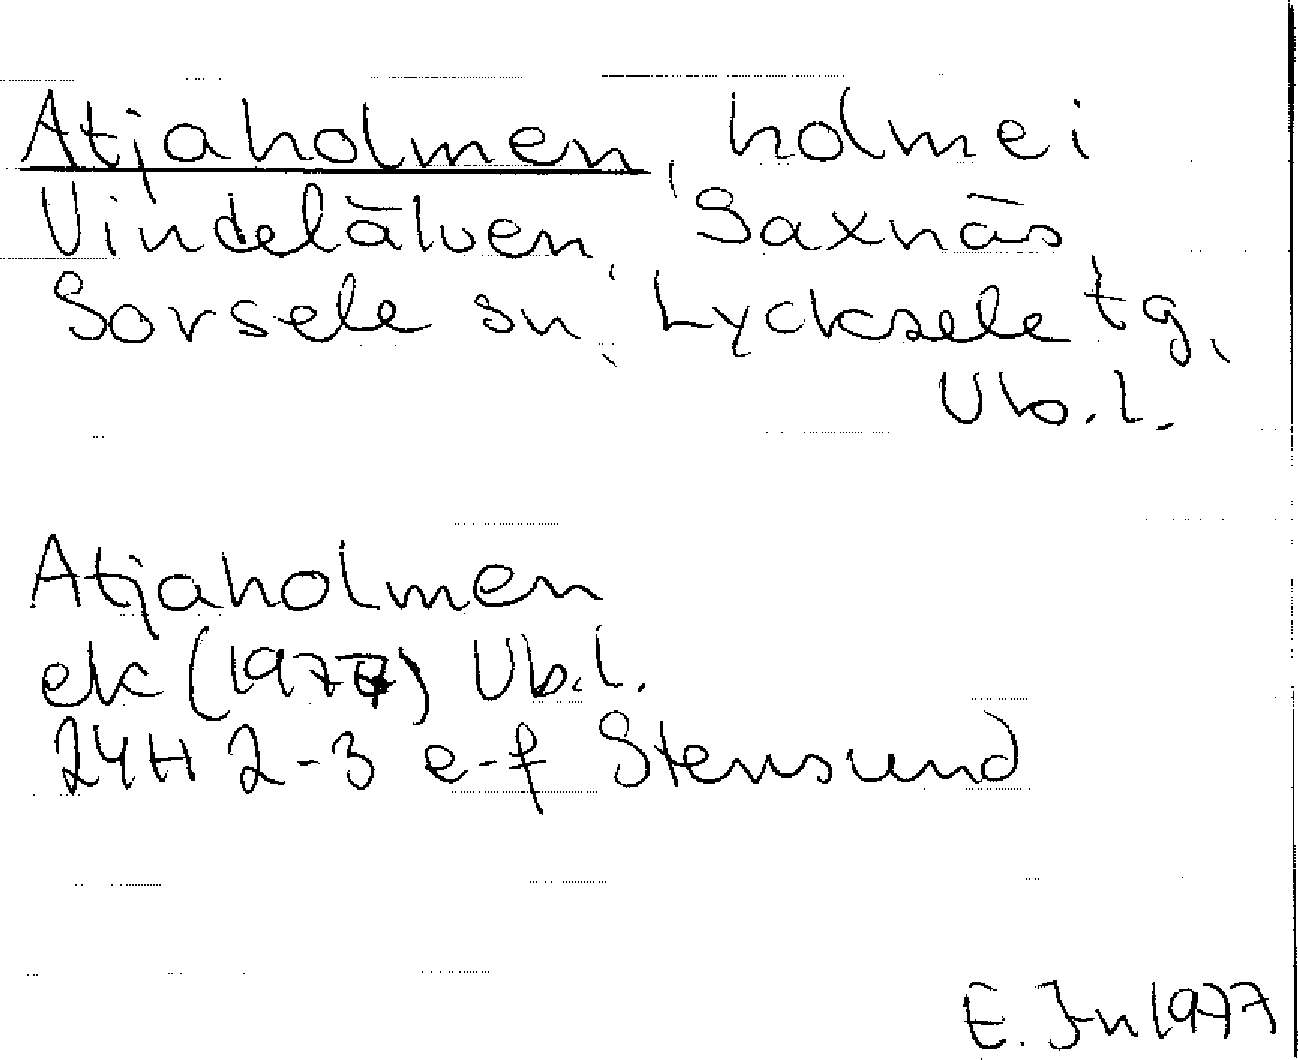 Atjaholmen, holme i
Vindelälven, Saxnäs
Sorsele sn, Lycksele tg,
Vb.l.
Atjaholmen
ek (1977) Vb.l.
24H 2-3 e-f Stensund
E. Jn 1977